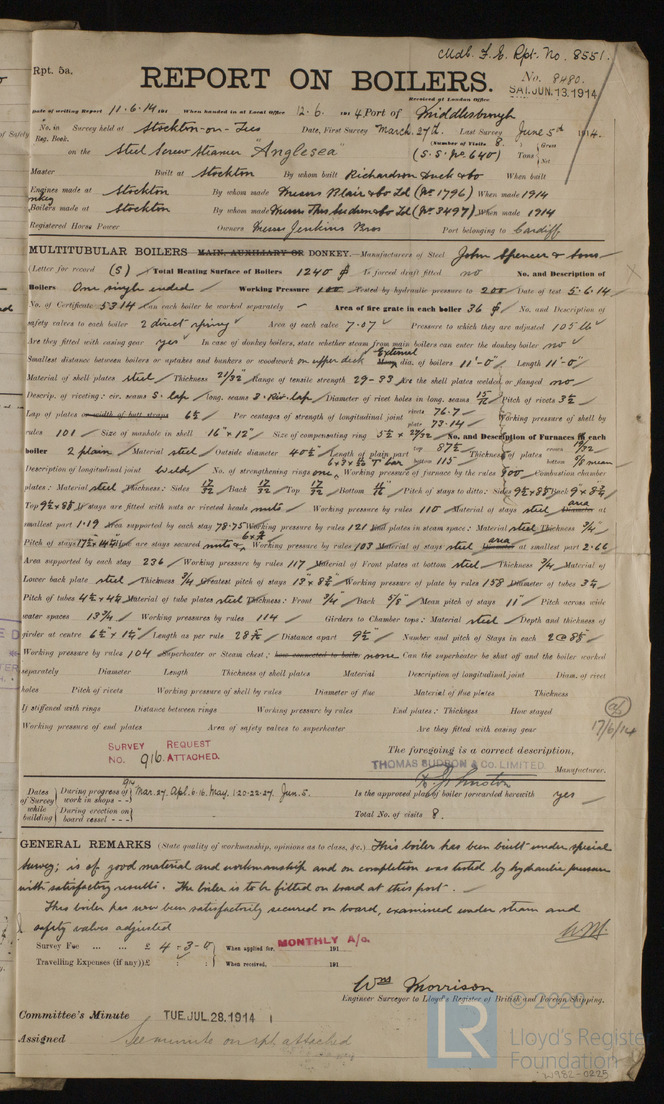 Mdb. F. E. Rpt. No. 8551.
Rpt. 5a.
REPORT ON BOILERS.
No. 8480.
Received at London Office SAT. JUN. 13. 1914
Date of writing Report 11.6.14 191 When handed in at Local Office 12.6. 1914 Port of Middlesbrough
No. in Reg. Book. Survey held at Stockton-on-Tees Date, First Survey March 27th Last Survey June 5th 1914.
(Number of Visits 8.
on the Steel Screw Steamer "Anglesea" (S.S. No. 640) Tons { Gross Net
Master Built at Stockton By whom built Richardson Duck & Co When built
Engines made at Stockton By whom made Messrs Blair & Co Ld (No. 1796) When made 1914
Donkey Boilers made at Stockton By whom made Messrs Thos. Hudson & Co Ld (No. 3497) When made 1914
Registered Horse Power Owners Messrs Jenkins Bros Port belonging to Cardiff
MULTITUBULAR BOILERS MAIN, AUXILIARY OR DONKEY.—Manufacturers of Steel John Spencer & Sons
(Letter for record (S) Total Heating Surface of Boilers 1240 Is forced draft fitted no No. and Description of
Boilers One single ended Working Pressure 100 Tested by hydraulic pressure to 200 Date of test 5.6.14
No. of Certificate 5314 Can each boiler be worked separately Area of fire grate in each boiler 36 No. and Description of
safety valves to each boiler 2 direct spring Area of each valve 7.07 Pressure to which they are adjusted 105 lb
Are they fitted with easing gear yes In case of donkey boilers, state whether steam from main boilers can enter the donkey boiler no
Smallest distance between boilers or uptakes and bunkers or woodwork on upper deck External Mean dia. of boilers 11'-0" Length 11'-0"
Material of shell plates steel Thickness 21/32" Range of tensile strength 29-33 Are the shell plates welded or flanged no
Descrip. of riveting: cir. seams S. lap long. seams 3. Riv. lap Diameter of rivet holes in long. seams 15/16 Pitch of rivets 3 1/2
Lap of plates or width of butt straps 6 1/2 Per centages of strength of longitudinal joint rivets 76.7 plate 73.14 Working pressure of shell by
rules 101 Size of manhole in shell 16" x 12" Size of compensating ring 5 1/2 x 29/32 No. and Description of Furnaces in each
boiler 2 plain Material steel Outside diameter 40 1/2 Length of plain part top 87 1/2 bottom 115 Thickness of plates crown 19/32 bottom 5/8 mean
Description of longitudinal joint Weld No. of strengthening rings one 6 x 3 x 1/2 T bar Working pressure of furnace by the rules 100 Combustion chamber
plates: Material steel Thickness: Sides 17/32 Back 17/32 Top 17/32 Bottom Pitch of stays to ditto: Sides 9 1/2 x 8 5/8 Back 9" x 8 3/4
Top 9 1/2 x 8 5/8 If stays are fitted with nuts or riveted heads nuts Working pressure by rules 110 Material of stays steel area Diameter at
smallest part 1.19 Area supported by each stay 78.75 Working pressure by rules 121 End plates in steam space: Material steel Thickness 3/4
Pitch of stays How are stays secured nuts & Working pressure by rules 103 Material of stays steel area Diameter at smallest part 2.66
Area supported by each stay 236 Working pressure by rules 117 Material of Front plates at bottom steel Thickness 3/4 Material of
Lower back plate steel Thickness 3/4 Greatest pitch of stays 13" x 8 3/4 Working pressure of plate by rules 158 Diameter of tubes 3 1/2
Pitch of tubes 4 3/4 x 4 3/4 Material of tube plates steel Thickness: Front 3/4" Back 5/8" Mean pitch of stays 11" Pitch across wide
water spaces 13 3/4 Working pressures by rules 114 Girders to Chamber tops: Material steel Depth and thickness of
girder at centre 6 1/2" x 1 1/2" Length as per rule 28 Distance apart 9 1/2" Number and pitch of Stays in each 2 @ 8 5/8
Working pressure by rules 104 Superheater or Steam chest; how connected to boiler none Can the superheater be shut off and the boiler worked
separately Diameter Length Thickness of shell plates Material Description of longitudinal joint Diam. of rivet
holes Pitch of rivets Working pressure of shell by rules Diameter of flue Material of flue plates Thickness
If stiffened with rings Distance between rings Working pressure by rules End plates: Thickness How stayed
Working pressure of end plates Area of safety valves to superheater Are they fitted with easing gear
17/6/14
SURVEY REQUEST
NO. 916. ATTACHED.
The foregoing is a correct description,
THOMAS HUDSON & Co. LIMITED. Manufacturer.
Dates of Survey while building { During progress of work in shops - - 1914 Mar. 27. Apl. 6. 16. May. 1. 20. 22. 27. Jun. 5.
During erection on board vessel - - -
Is the approved plan of boiler forwarded herewith yes
Total No. of visits 8.
GENERAL REMARKS (State quality of workmanship, opinions as to class, &c.) This boiler has been built under special
survey; is of good material and workmanship and on completion was tested by hydraulic pressure
with satisfactory results. The boiler is to be fitted on board at this port.
This boiler has now been satisfactorily secured on board, examined under steam and
safety valves adjusted
WM.
Survey Fee ... ... £ 4-3-0 When applied for, MONTHLY A/c. 191
Travelling Expenses (if any) £ : : When received, 191
Wm Morrison
Engineer Surveyor to Lloyd's Register of British and Foreign Shipping.
Committee's Minute TUE. JUL. 28. 1914
Assigned See minute on rpt attached
LR © 2020
Lloyd's Register
Foundation
W982-0225